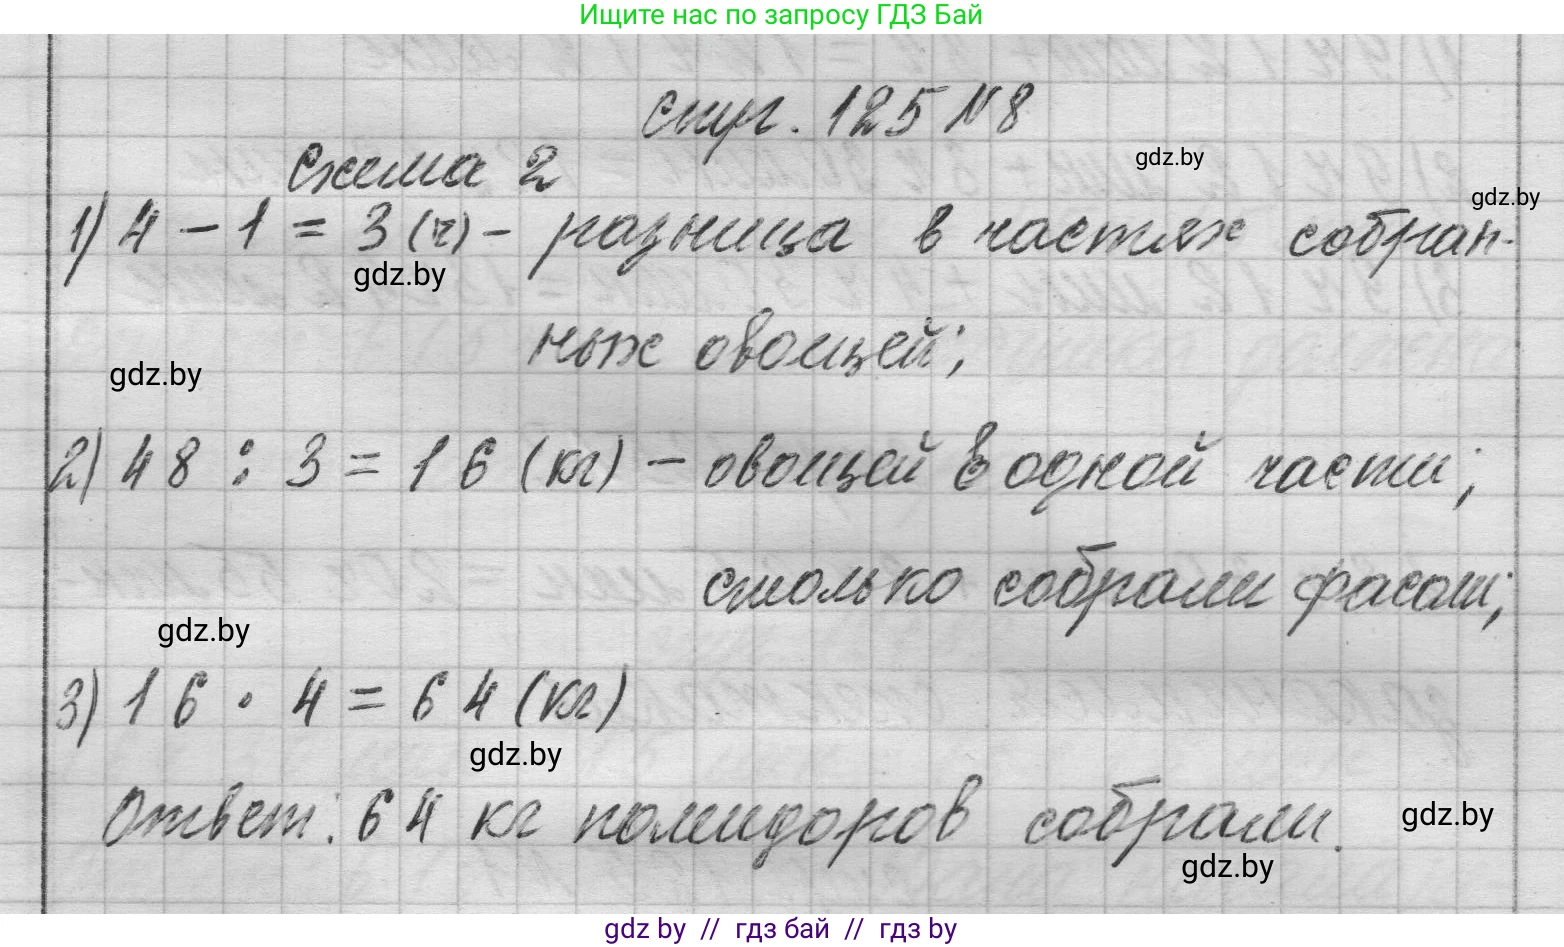 Ищите нас по запросу ГДЗ Бай
стр. 125 №8
gdz.by
схема 2
gdz.by
1) 4 - 1 = 3 (ч) - разница в частях собран-
gdz.by
ных овощей;
gdz.by
2) 48 : 3 = 16 (кг) - овощей в одной части;
столько собрали фасоли;
gdz.by
3) 16 · 4 = 64 (кг)
gdz.by
Ответ: 64 кг помидоров собрали.
gdz.by
gdz.by
gdz by // гдз бай // гдз by